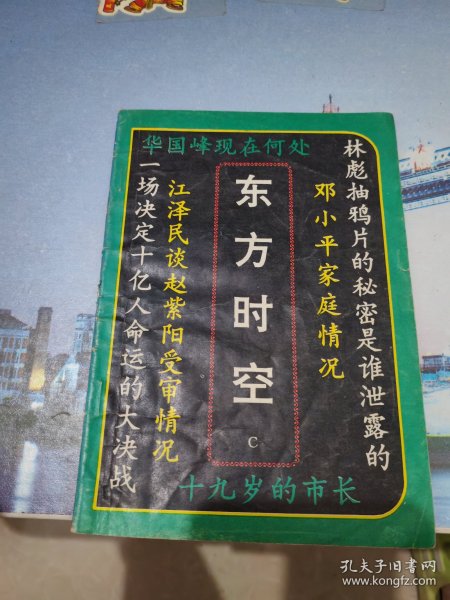 华国峰现在何处
林彪抽鸦片的秘密是谁泄露的
邓小平家庭情况
东方时空
C
江泽民谈赵紫阳受审情况
一场决定十亿人命运的大决战
十九岁的市长
孔夫子旧书网
www.kongfz.com